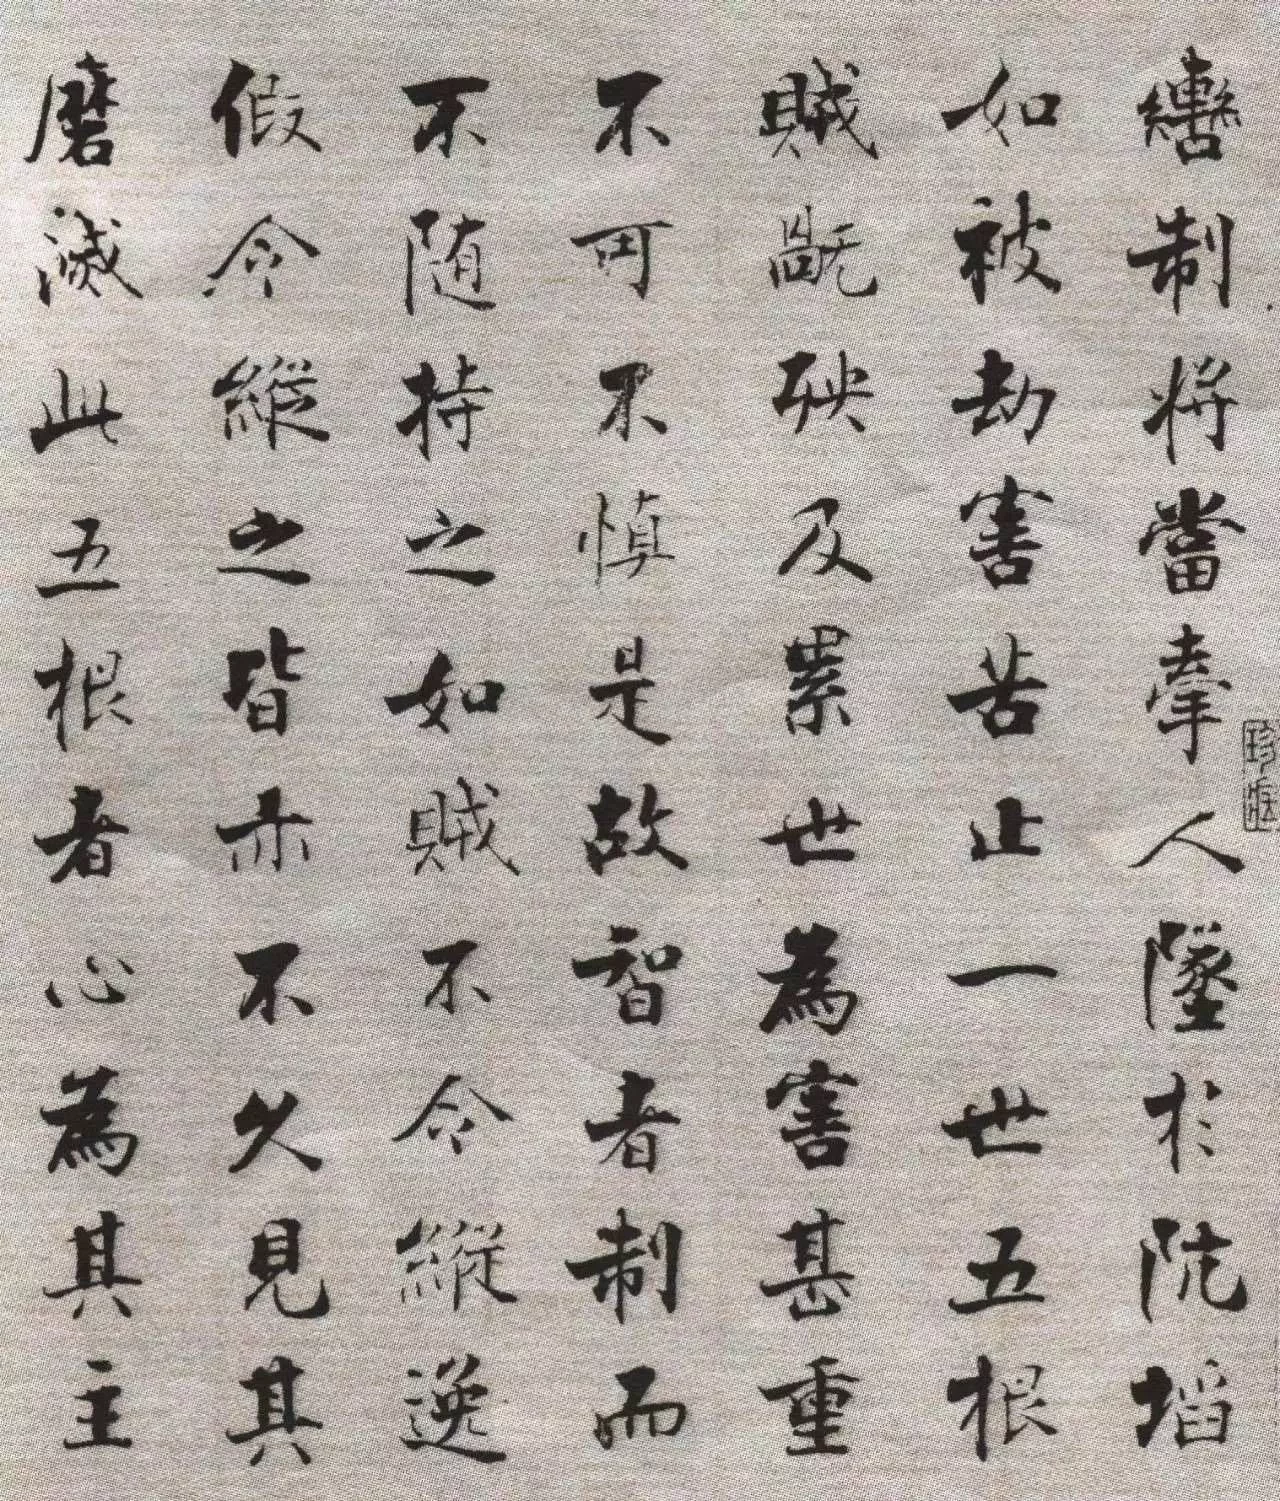 轡制將當牽人墜於阬埳
如被劫害苦止一世五根
賊祸殃及累世為害甚重
不可不慎是故智者制而
不随持之如賊不令縱逸
假令縱之皆亦不久見其
磨滅此五根者心為其主
珍藏